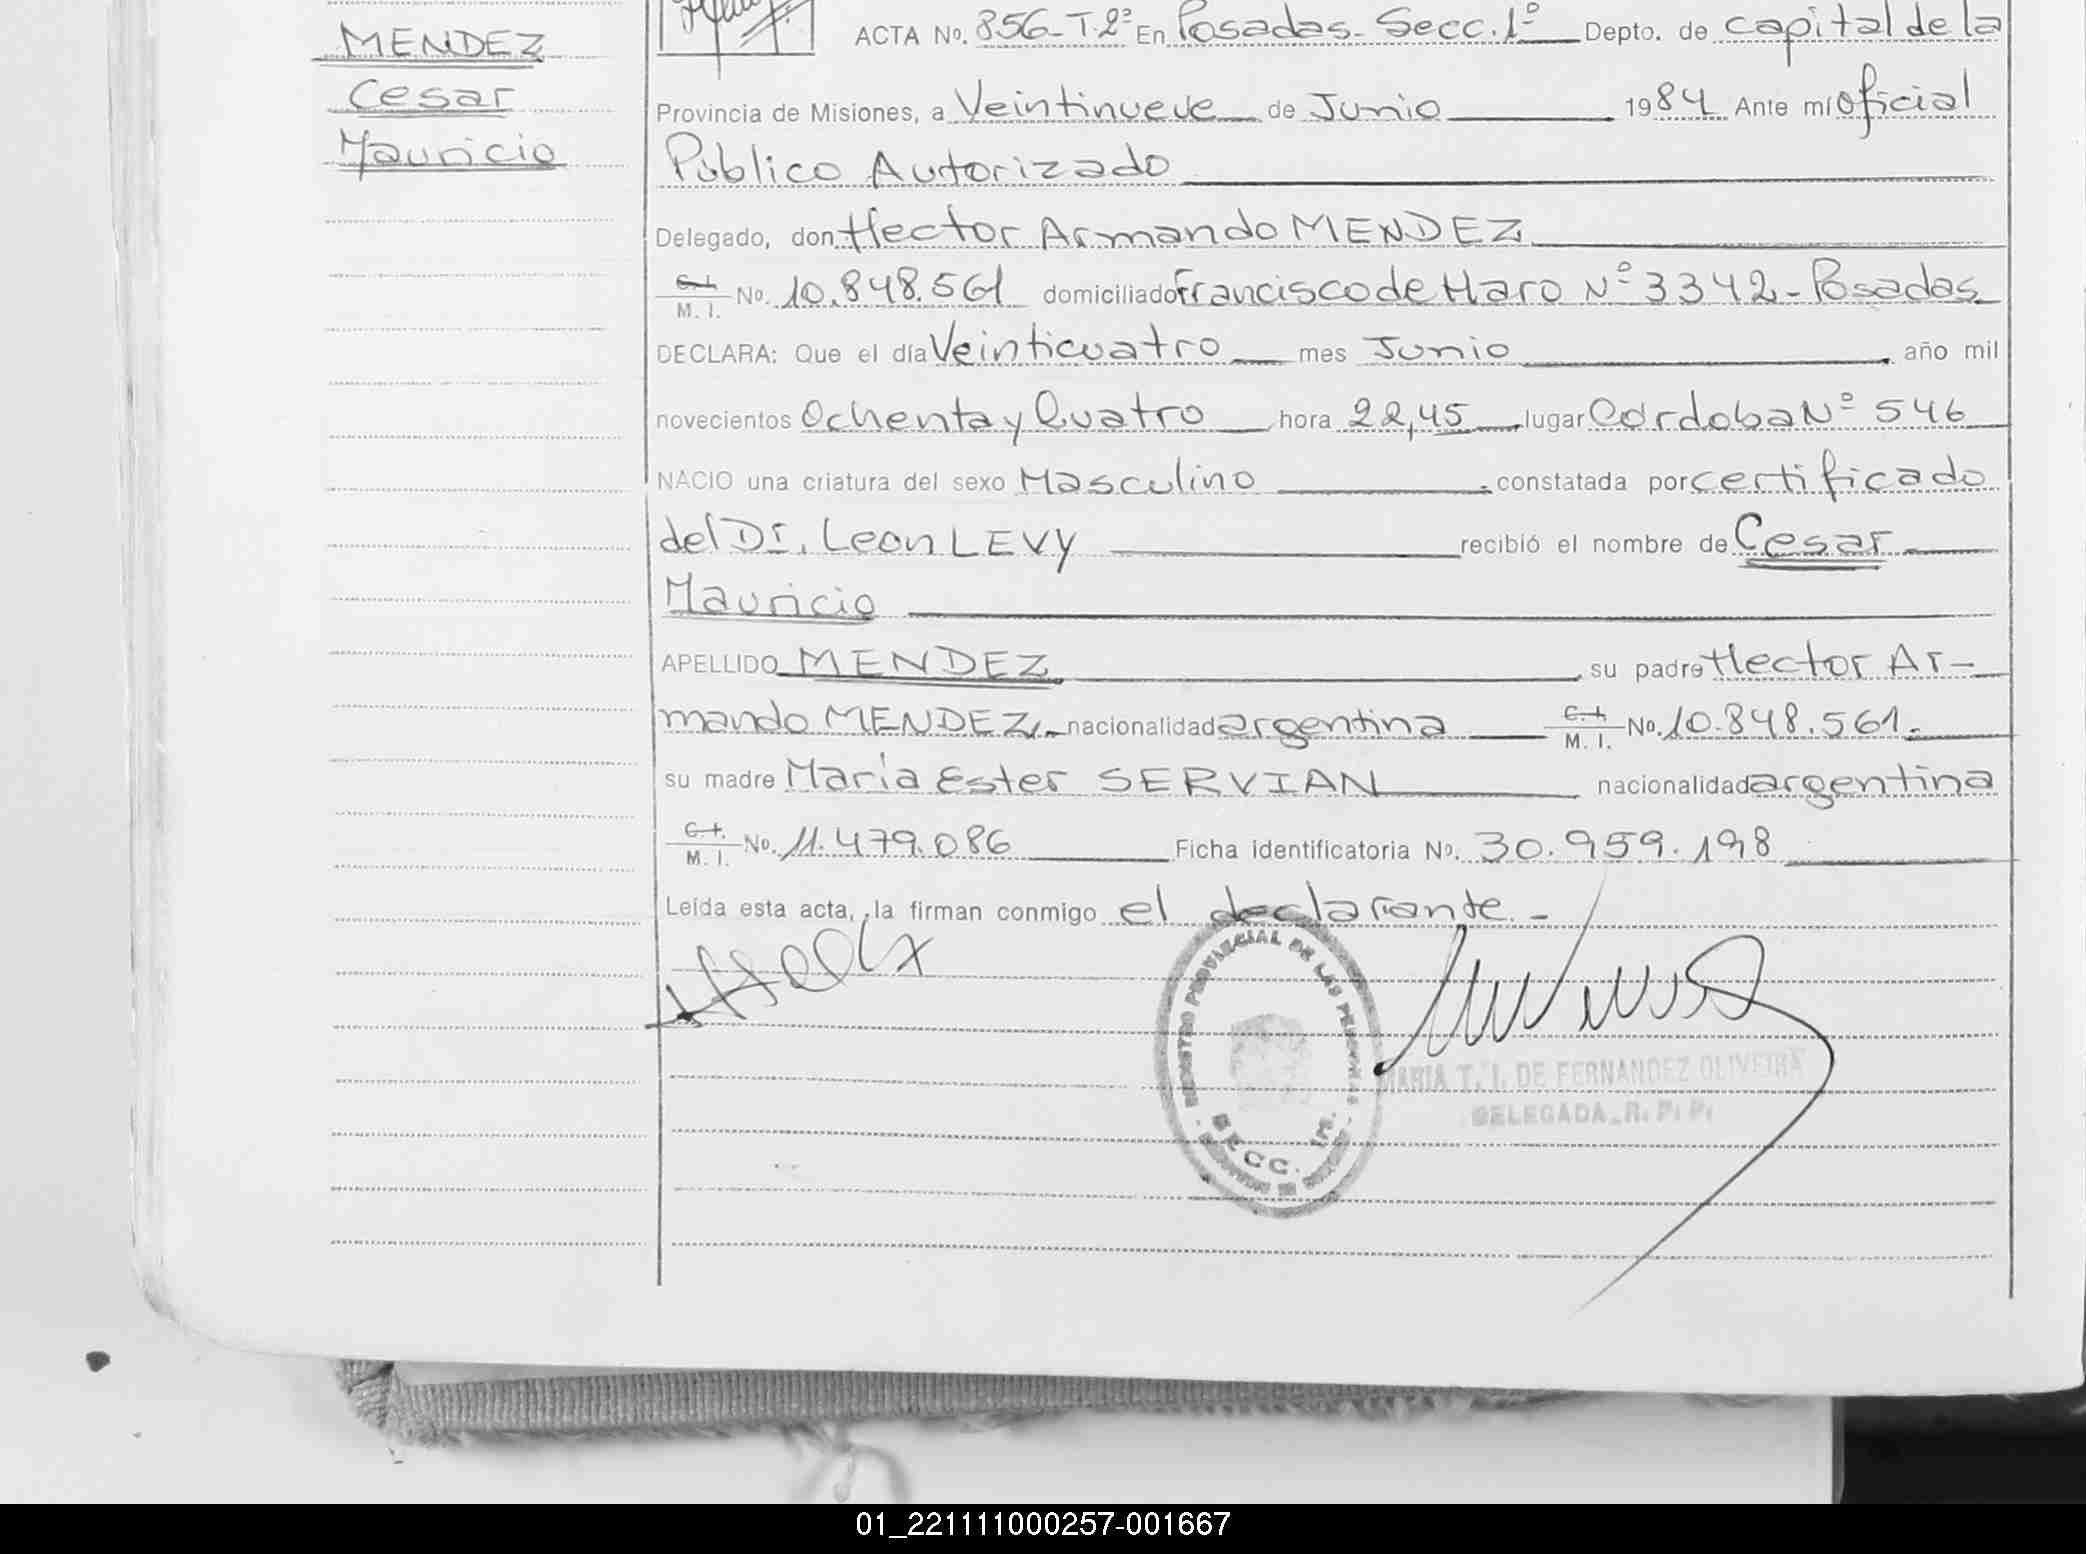 MENDEZ
Cesar
Mauricio
ACTA No. 856-T.2º En Posadas- Secc. 1º Depto. de Capital de la
Provincia de Misiones, a Veintinueve de Junio 1984 Ante mí Oficial
Público Autorizado
Delegado, don Hector Armando MENDEZ
C.I. M. I. No. 10.848.561 domiciliado Francisco de Haro Nº 3342-Posadas
DECLARA: Que el día Veinticuatro mes Junio año mil
novecientos Ochenta y Cuatro hora 22,45 lugar Cordoba Nº 546
NACIO una criatura del sexo Masculino constatada por certificado
del Dr. Leon LEVY recibió el nombre de Cesar
Mauricio
APELLIDO MENDEZ su padre Hector Ar-
mando MENDEZ nacionalidad argentina C.I. M. I. No. 10.848.561.
su madre Maria Ester SERVIAN nacionalidad argentina
C.I. M. I. No. 11.479.086 Ficha identificatoria No. 30.959.198
Leída esta acta, la firman conmigo el declarante.-
REGISTRO PROVINCIAL DE LAS PERSONAS
SECC. 1ª.
MARIA T. I. DE FERNANDEZ OLIVEIRA
DELEGADA R. P. P.
01_221111000257-001667